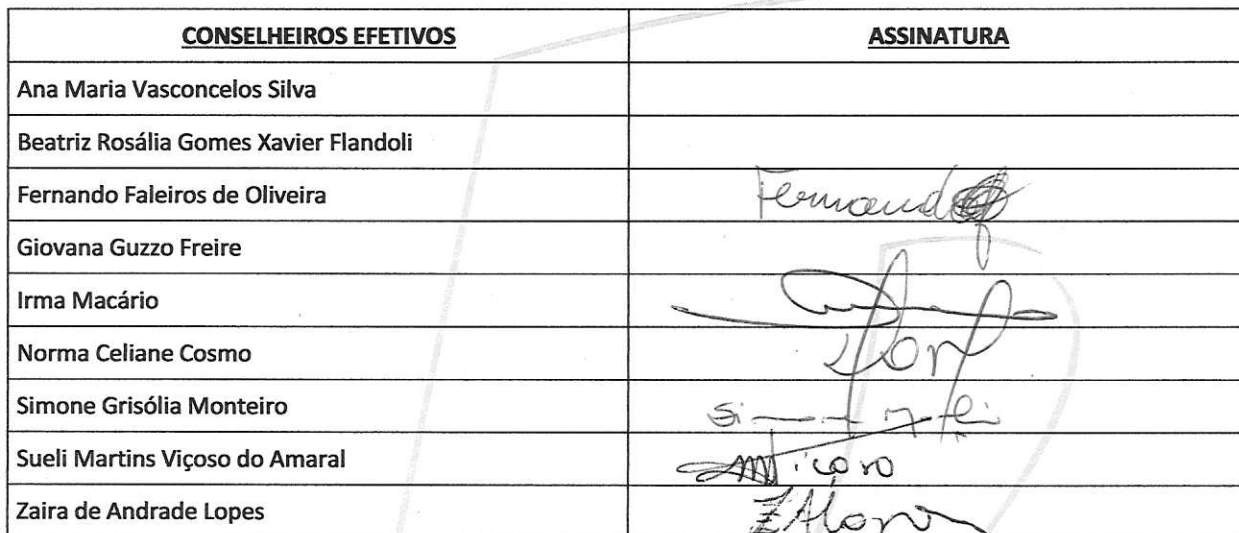 CONSELHEIROS EFETIVOS ASSINATURA
Ana Maria Vasconcelos Silva
Beatriz Rosália Gomes Xavier Flandoli
Fernando Faleiros de Oliveira Fernando
Giovana Guzzo Freire
Irma Macário
Norma Celiane Cosmo
Simone Grisólia Monteiro
Sueli Martins Viçoso do Amaral
Zaira de Andrade Lopes ZALopes